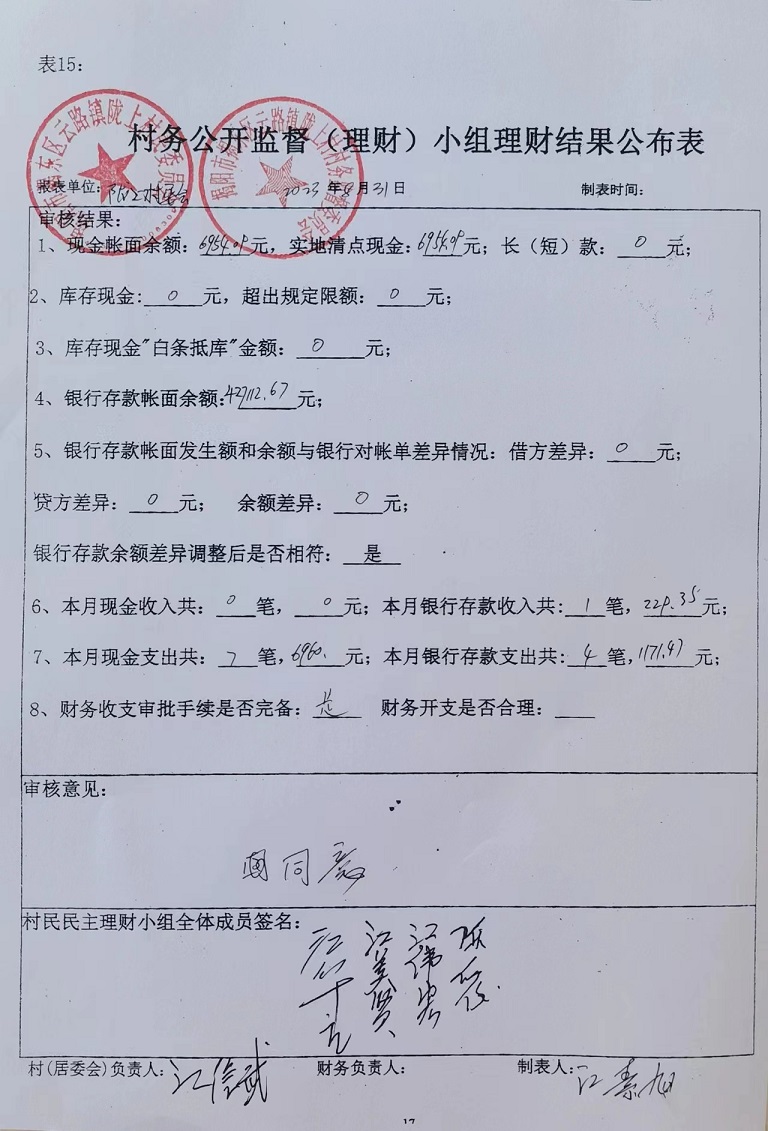 表15：
村务公开监督（理财）小组理财结果公布表
报表单位： 2023 年8月31日 制表时间：
审核结果：
1、现金帐面余额：6954.09元，实地清点现金：6954.09元；长（短）款：0元；
2、库存现金：0元，超出规定限额：0元；
3、库存现金"白条抵库"金额：0元；
4、银行存款帐面余额：42712.67元；
5、银行存款帐面发生额和余额与银行对帐单差异情况：借方差异：0元；
贷方差异：0元； 余额差异：0元；
银行存款余额差异调整后是否相符：是
6、本月现金收入共：0笔，0元；本月银行存款收入共：1笔，229.35元；
7、本月现金支出共：7笔，6960.元；本月银行存款支出共：4笔，1171.47元；
8、财务收支审批手续是否完备：是 财务开支是否合理：
审核意见：
同意
村民民主理财小组全体成员签名：
村(居委会)负责人： 财务负责人： 制表人：
17